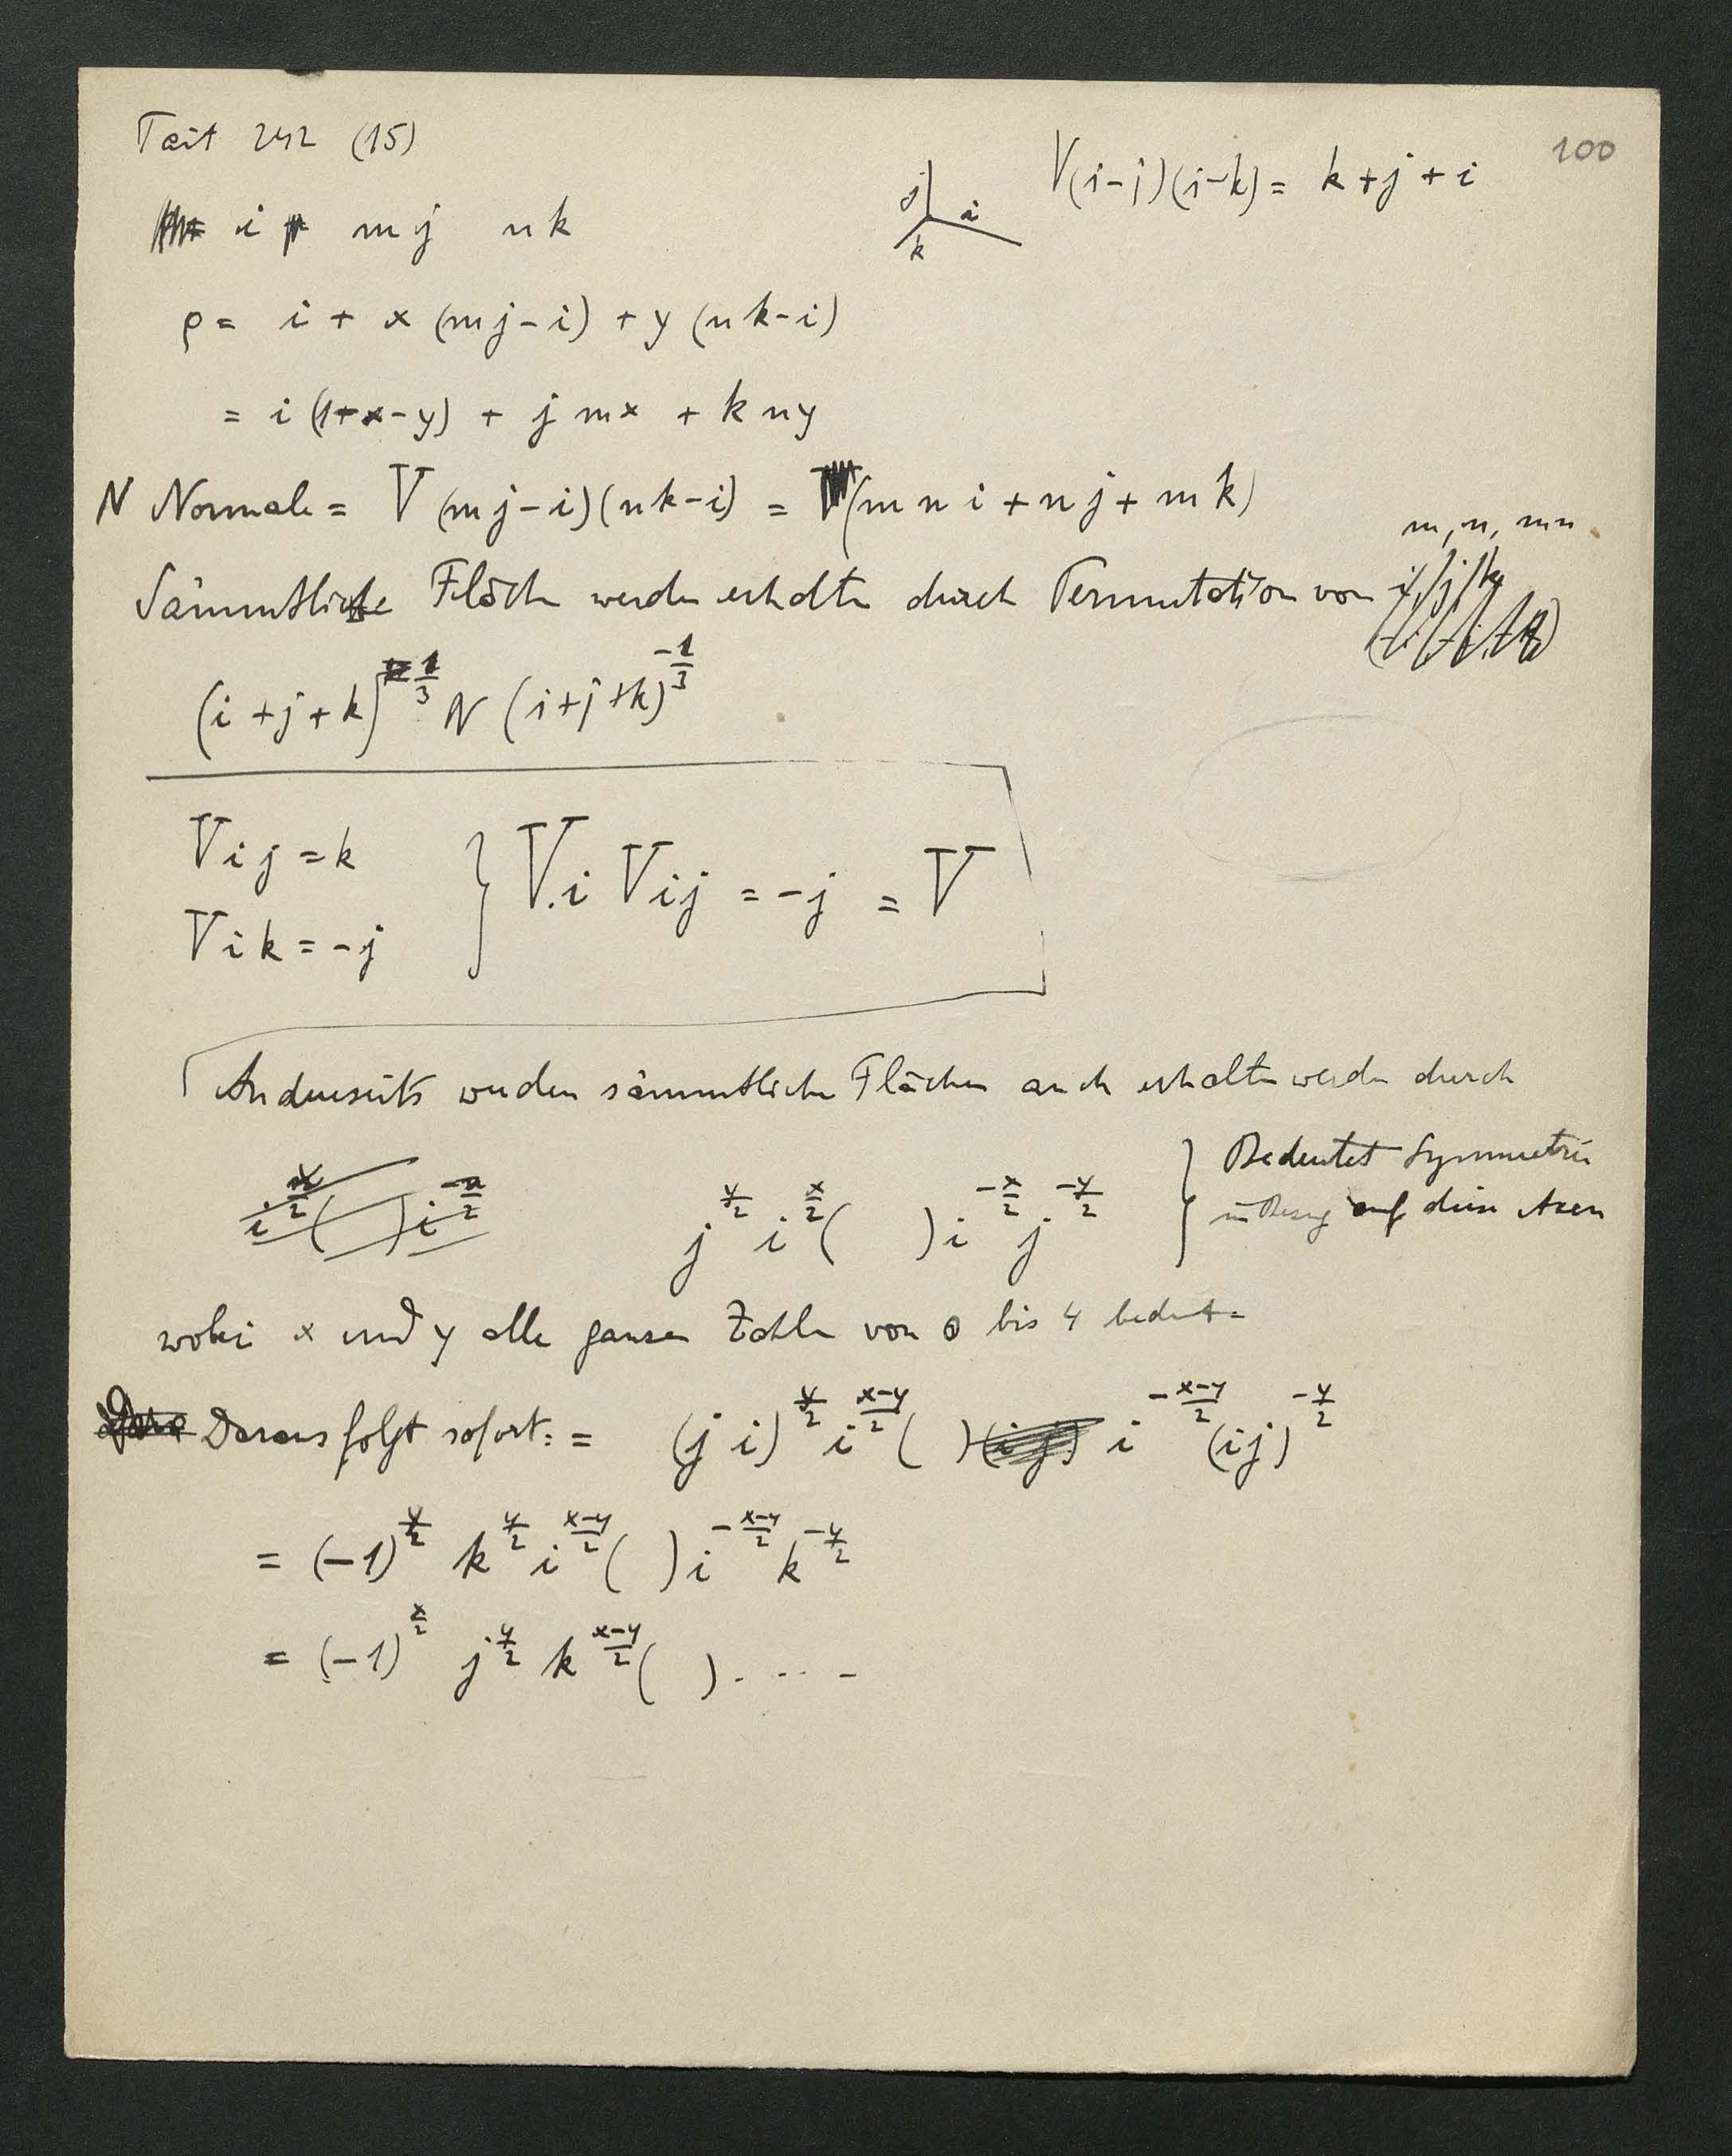 Tait 242 (15)
100
V(i-j)(i-k) = k+j+i
j i
k
i mj nk
ρ = i + x (mj-i) + y (nk-i)
= i (1+x-y) + j mx + k ny
N Normale = V (mj-i)(nk-i) = (mn i + nj + mk)
m, n, mn
Sämmtliche Fläche werden erhalten durch Permutation von i, j, k
(i+j+k)^{1/3} N (i+j+k)^{-1/3}
Vij = k
Vik = -j
} V.i Vij = -j = V
Anderseits werden sämmtliche Flächen auch erhalten werden durch
i^{x/2} ( ) i^{-x/2} j^{y/2} i^{x/2} ( ) i^{-x/2} j^{-y/2} } Bedeutet Symmetrie
in Bezug auf diese Axen
wobei x und y alle ganzen Zahlen von 0 bis 4 bedeut.
Daraus folgt sofort: = (j i)^{y/2} i^{(x-y)/2} ( ) (ij) i^{-(x-y)/2} (ij)^{-y/2}
= (-1)^{y/2} k^{y/2} i^{(x-y)/2} ( ) i^{-(x-y)/2} k^{-y/2}
= (-1)^{x/2} j^{y/2} k^{(x-y)/2} ( ) . . . . -